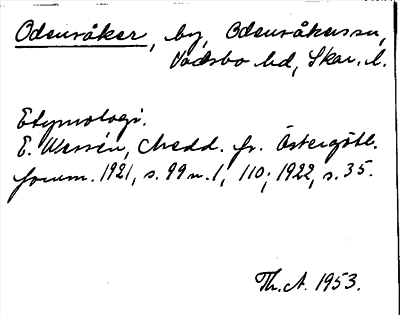 Odensåker, by, Odensåkers sn,
Vadsbo hd, Skar. l.
Etymologi.
E. Wessén, Medd. fr. Östergötl.
fornm. 1921, s. 99 n. 1, 110; 1922, s. 35.
Th. A. 1953.